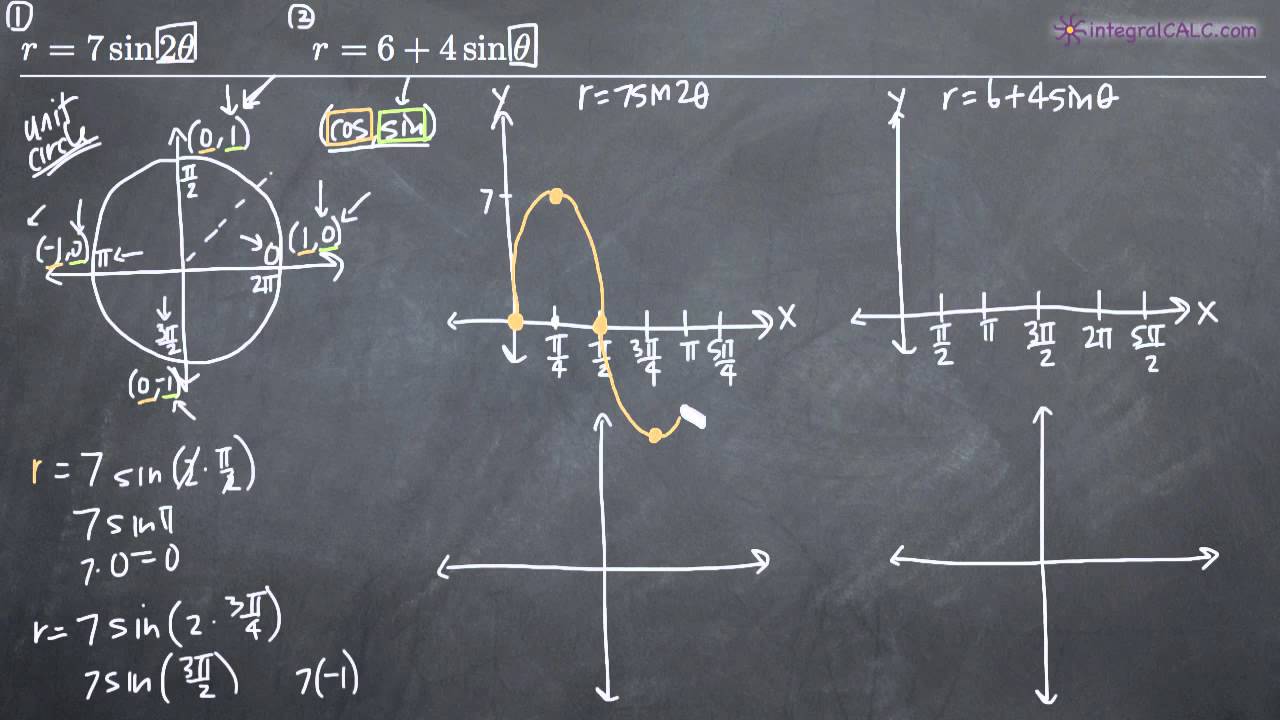 ① r = 7 sin 2θ
② r = 6 + 4 sin θ
integralCALC.com
unit circle
(0, 1)
(cos, sin)
π/2
(-1, 0) π
0 (1, 0)
2π
3π/2
(0, -1)
r = 7 sin (2 · π/2)
7 sin π
7 · 0 = 0
r = 7 sin (2 · 3π/4)
7 sin (3π/2) 7(-1)
y r = 7 sin 2θ
7
x
π/4 π/2 3π/4 π 5π/4
y r = 6 + 4 sin θ
x
π/2 π 3π/2 2π 5π/2